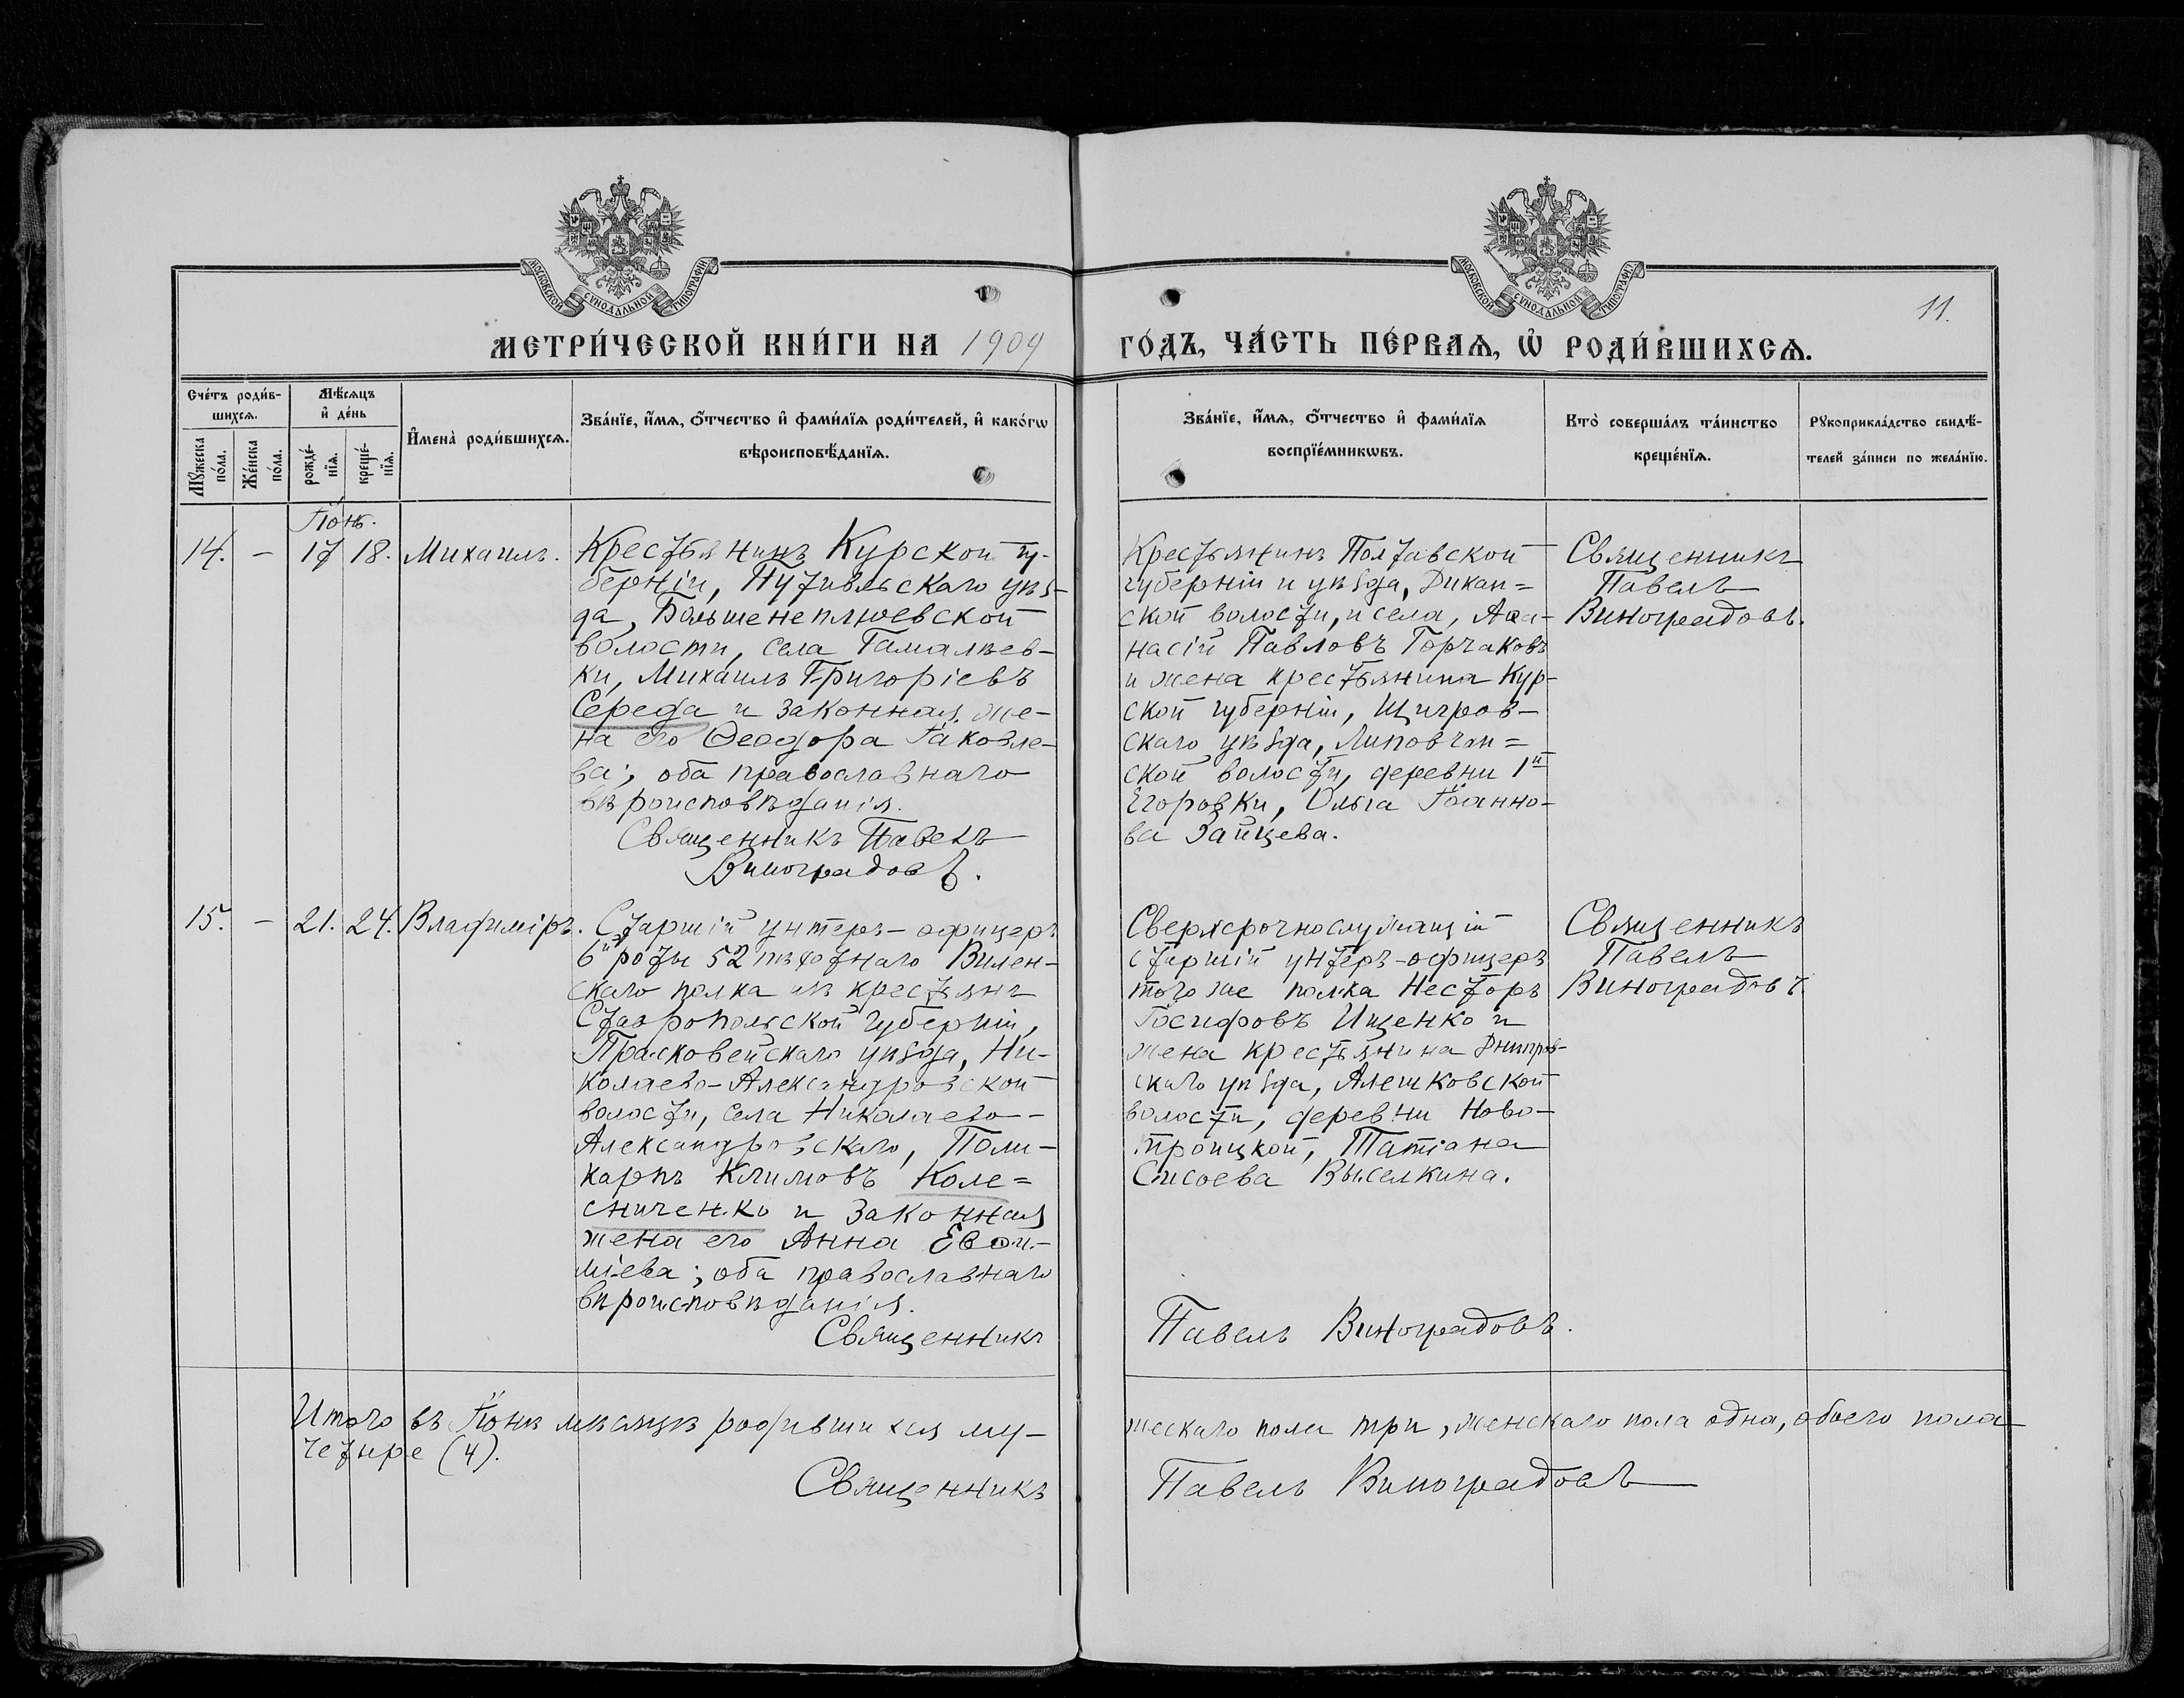 МОСКОВСКОЙ СѴНОДАЛЬНОЙ ТИПОГРАФІИ
МОСКОВСКОЙ СѴНОДАЛЬНОЙ ТИПОГРАФІИ
11.
МЕТРИ́ЧЕСКОЙ КНИ́ГИ НА 1909
ГО́ДЪ, ЧА́СТЬ ПЕ́РВАѦ, Ѡ҆ РОДИ́ВШИХСѦ.
Сче́тъ роди́в-
шихсѧ.
Мꙋ́жеска по́ла.
Же́нска по́ла.
Мѣ́сѧцъ
и҆ де́нь
рожде́-
нїѧ.
креще́-
нїѧ.
И҆мена̀ роди́вшихсѧ.
Зва́нїе, и҆́мѧ, ѻ҆́тчество и҆ фами́лїѧ роди́телей, и҆ како́гѡ
вѣроисповѣ́данїѧ.
Зва́нїе, и҆́мѧ, ѻ҆́тчество и҆ фами́лїѧ
воспрїе́мникѡвъ.
Кто̀ соверша́лъ та́инство
креще́нїѧ.
Рꙋкоприкла́дство свидѣ́-
телей за́писи по жела́нїю.
Іюнь.
14. – 17 18. Михаилъ.
Крестьянинъ Курской гу-
берніи, Путивльскаго уѣз-
да, Большенеплюевской
волости, села Гамалѣев-
ки, Михаилъ Григоріевъ
Середа и законная же-
на его Ѳеодора Іаковле-
ва; оба православнаго
вѣроисповѣданія.
Священникъ Павелъ
Виноградовъ.
Крестьянинъ Полтавской
губерніи и уѣзда, Дикан=
ской волости, и села, Аѳа-
насій Павловъ Горчаковъ
и жена крестьянина Кур-
ской губерніи, Щигров-
скаго уѣзда, Липовчан=
ской волости, деревни 1й
Егоровки, Ольга Іоанно-
ва Зайцева.
Священникъ
Павелъ
Виноградовъ.
15. – 21. 24. Владиміръ.
Старшій унтеръ-офицеръ
6й роты 52 пѣхотнаго Вилен-
скаго полка изъ крестьянъ
Ставропольской губерніи,
Прасковейскаго уѣзда, Ни-
колаево-Александровской
волости, села Николаево-
Александровскаго, Поли-
карпъ Климовъ Коле=
сниченко и законная
жена его Анна Евѳи-
міева; оба православнаго
вѣроисповѣданія.
Священникъ
Сверхсрочнослужащій
старшій унтеръ-офицеръ
того же полка Несторъ
Іосифовъ Ищенко и
жена крестьянина Днѣпров-
скаго уѣзда, Алешковской
волости, деревни Ново-
троицкой, Татіана
Сысоева Выселкина.
Павелъ Виноградовъ.
Священникъ
Павелъ
Виноградовъ.
Итого въ Іюнѣ мѣсяцѣ родившихся му-
жескаго пола три, женскаго пола одна, обоего пола
четыре (4).
Священникъ
Павелъ Виноградовъ